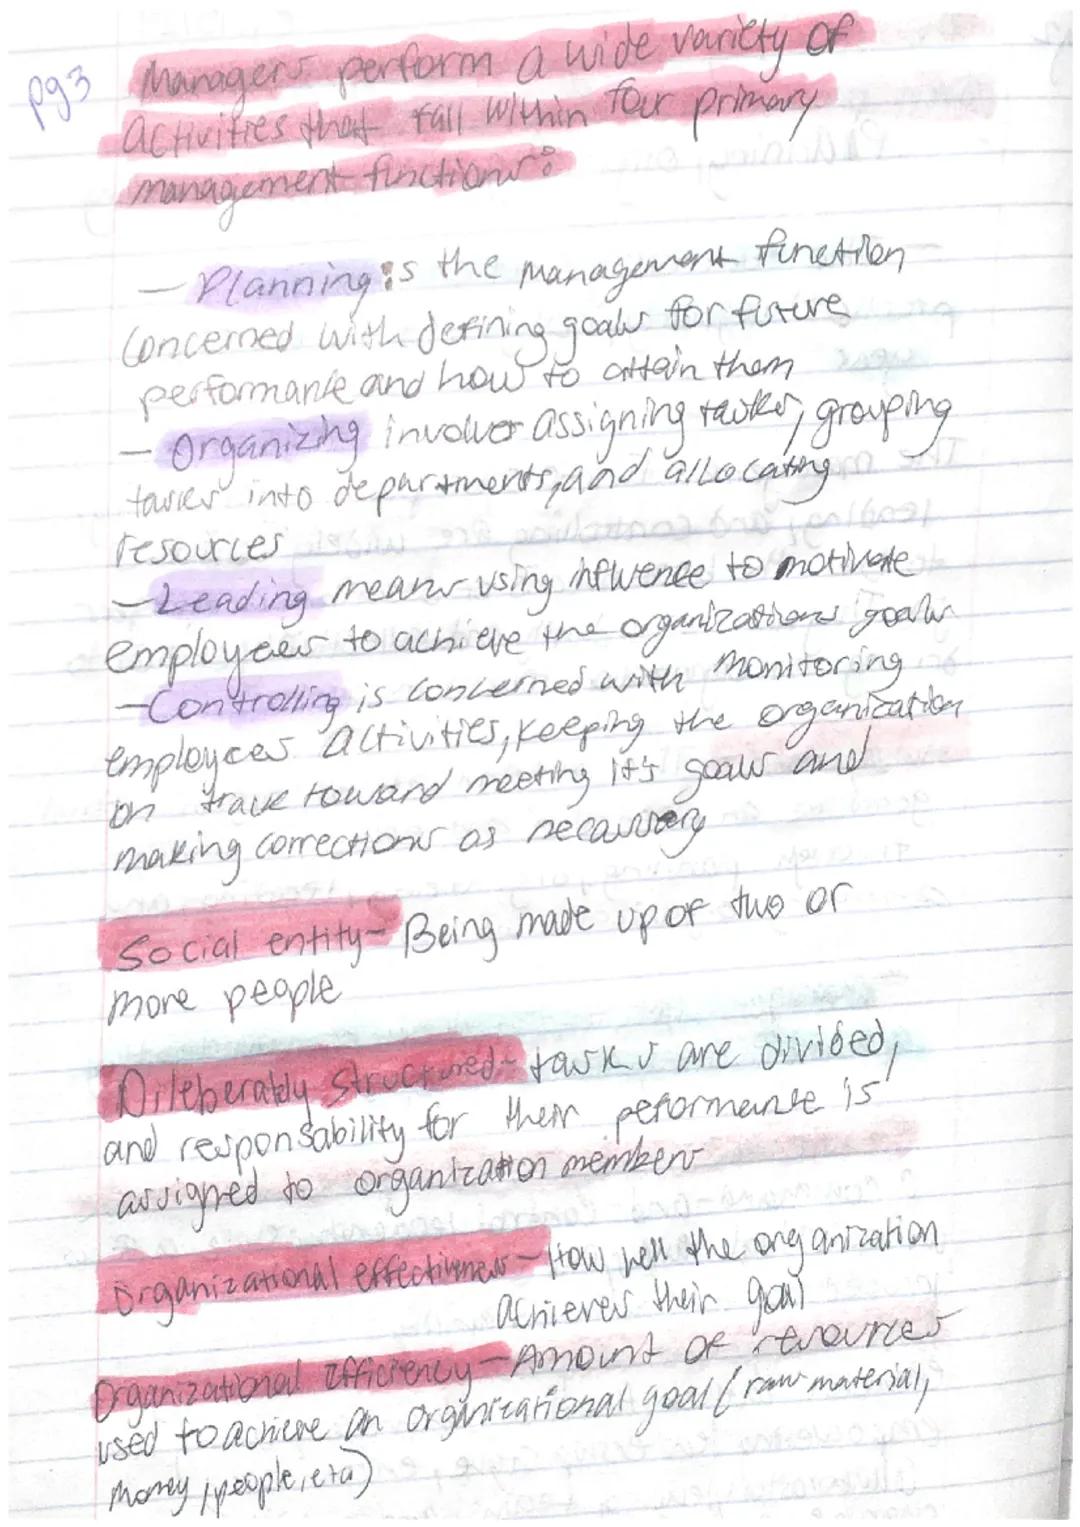 pg3
Managers perform a wide variety of
activities that fall within four primary
management functions:
— Planning is the management function
concerned with defining goals for future
performance and how to attain them
— Organizing involves assigning tasks, grouping
tasks into departments, and allocating
resources
— Leading means using influence to motivate
employees to achieve the organizations goals
— Controlling is concerned with monitoring
employees activities, keeping the organization
on track toward meeting it's goals and
making corrections as necessary
Social entity- Being made up of two or
more people
Dileberately structured- tasks are divided,
and responsability for their peformance is
assigned to organization members
Organizational effectiveness - How well the organization
achieves their goal
Organizational Efficiency - Amount of resources
used to achieve an organizational goal (raw material,
money, people, eta)